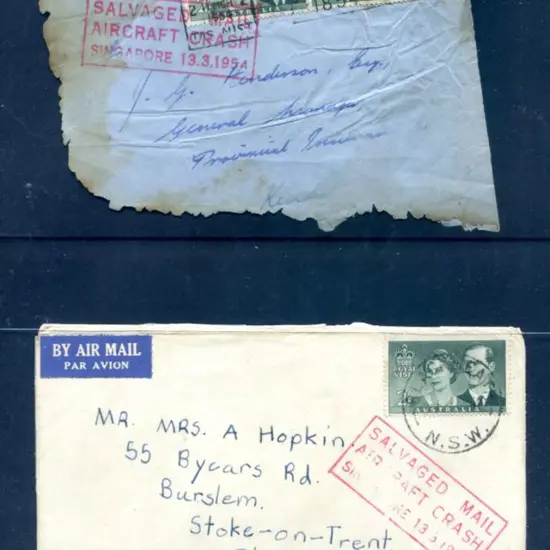 SALVAGED MAIL
AIRCRAFT CRASH
SINGAPORE 13.3.1954
J. G. Henderson, Esq.,
General Manager,
Provincial
BY AIR MAIL
PAR AVION
ROYAL
VISIT
AUSTRALIA
N.S.W.
SALVAGED MAIL
AIRCRAFT CRASH
13.3.19
MR. MRS. A Hopkin
55 Bycars Rd.
Burslem.
Stoke-on-Trent